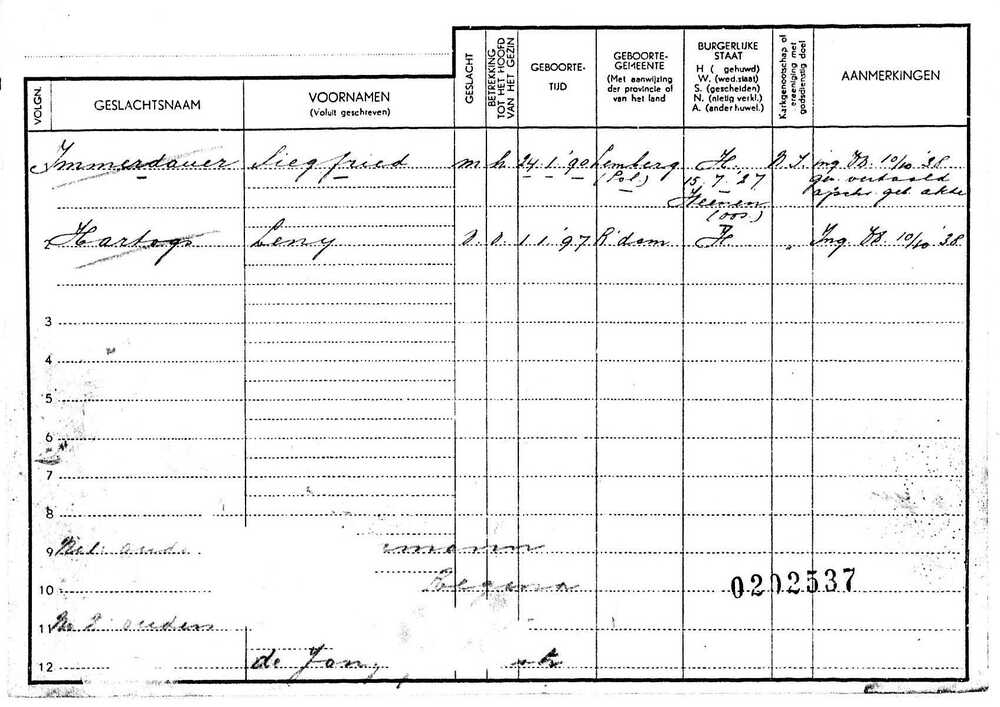 VOLGN.
GESLACHTSNAAM
VOORNAMEN
(Voluit geschreven)
GESLACHT
BETREKKING
TOT HET HOOFD
VAN HET GEZIN
GEBOORTE-
TIJD
GEBOORTE-
GEMEENTE
(Met aanwijzing
der provincie of
van het land
BURGERLIJKE
STAAT
H ( gehuwd)
W. (wed.staat)
S. (gescheiden)
N. (nietig verkl.)
A. (ander huwel.)
Kerkgenootschap of
vereeniging met
godsdienstig doel
AANMERKINGEN
Immerdauer Siegfried m h 24 1 '90 Lemberg H. N. I. ing VB. 10/10 '38
(Pol.) 15 7 '27 verhaald
Heenen afschr. geb. akte
(oos.)
Hartogs Leny v. v. 1 1 '97 R'dam H " Ing. VB. 10/10 '38.
3
4
5
6
7
8
9
10 Regina 0202537
11 ouders
12 de Jong